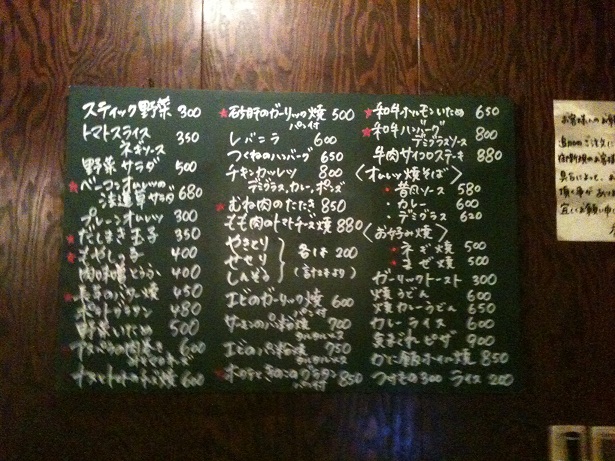 スティック野菜 300
トマトスライス 350
ネギソース
野菜サラダ 500
★ベーコンオムレツの 680
法蓮草サラダ
プレーンオムレツ 300
★だしまき玉子 350
★もやしっ子 400
肉味噌とうふ 400
★長芋のバター焼 450
ポットグラタン 480
野菜いため 500
★アスパラの肉巻き 600
ナスとトマトのチーズ焼 600
★砂肝のガーリック焼 500
パン付
レバニラ 600
つくねのハンバーグ 650
チキンカツレツ 800
デミグラス、カレー、ポンズ
★むね肉のたたき 850
もも肉のトマトチーズ焼 880
やきとり
せせり 各1本 200
しんぞう
エビのガーリック焼 600
パン付
サーモンのパン粉焼 700
エビのパン粉焼 750
★ホタテときのこのグラタン 850
パン付
★和牛ホルモンいため 650
★和牛ハンバーグ 800
デミグラスソース
牛肉サイコロステーキ 880
〈オムレツ焼そば〉
★昔風ソース 580
・カレー 600
・デミグラス 620
〈お好み焼〉
★ネギ焼 500
★まぜ焼 500
ガーリックトースト 300
焼うどん 600
焼カレーうどん 650
カレーライス 600
気まぐれピザ 900
850
つけもの 300 ライス 200